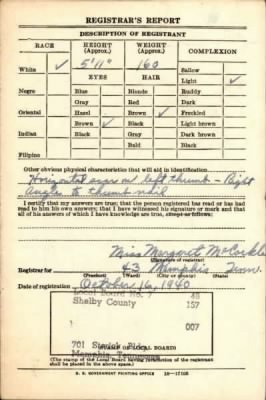 REGISTRAR'S REPORT
DESCRIPTION OF REGISTRANT
RACE HEIGHT (Approx.) WEIGHT (Approx.) COMPLEXION
White ✓ 5'11" 160 Sallow
EYES HAIR Light ✓
Negro Blue Blonde Ruddy
Gray Red Dark
Oriental Hazel Brown ✓ Freckled
Brown ✓ Black Light brown
Indian Black Gray Dark brown
Bald Black
Filipino
Other obvious physical characteristics that will aid in identification
Horizontal scar on left thumb - Right
angles to thumb nail
I certify that my answers are true; that the person registered has read or has had
read to him his own answers; that I have witnessed his signature or mark and that
all of his answers of which I have knowledge are true, except as follows:
Miss Margaret
Registrar for 43 Memphis Tenn.
(Precinct) (Ward) (City or county) (State)
Date of registration October 16, 1940
Local Board No. 7 48
Shelby County 157
007
701 Sterick Bldg.
(STAMP OF LOCAL BOARD)
Memphis, Tennessee
(The stamp of the Local Board having jurisdiction of the registrant
shall be placed in the above space.)
U. S. GOVERNMENT PRINTING OFFICE